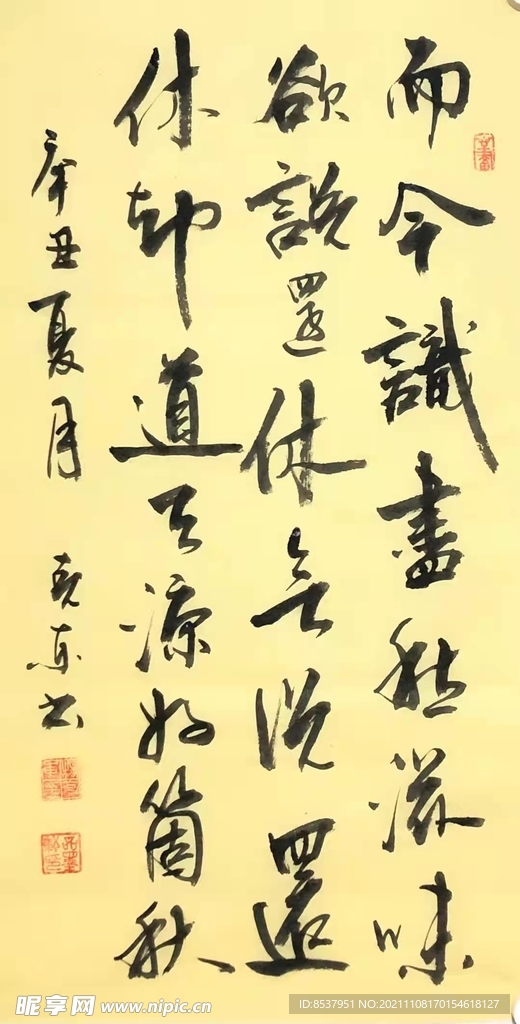 而今識盡愁滋味
欲說還休欲说還
休却道天凉好箇秋
辛丑夏月 东书
昵享网 www.nipic.cn
ID:8537951 NO:20211108170154618127